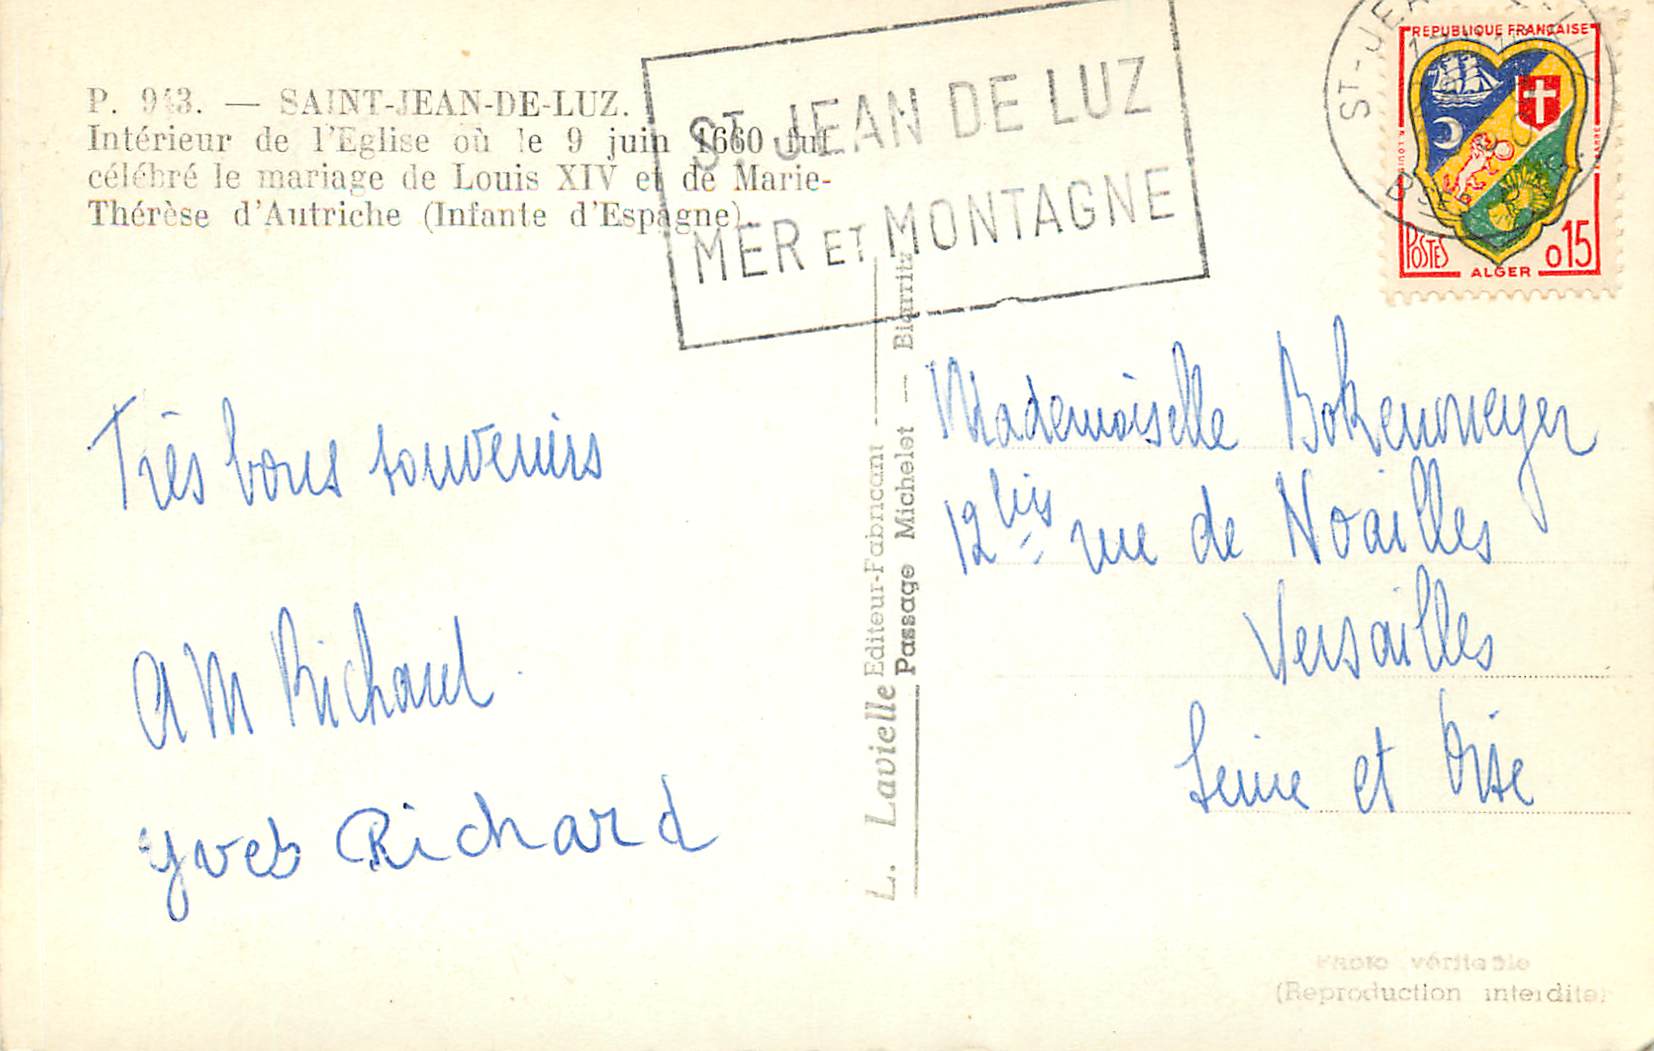 P. 943. — SAINT-JEAN-DE-LUZ.
Intérieur de l'Eglise où le 9 juin 1660 fut
célébré le mariage de Louis XIV et de Marie-
Thérèse d'Autriche (Infante d'Espagne).
ST JEAN DE LUZ
MER ET MONTAGNE
ST-JEAN
REPUBLIQUE FRANÇAISE
POSTES
ALGER
0,15
Très bons souvenirs
AM Richard
Yves Richard
L. Lavielle Editeur-Fabricant
Passage Michelet — Biarritz
Mademoiselle Bokenmeyer
12 bis rue de Noailles
Versailles
Seine et Oise
Photo véritable
(Reproduction interdite)